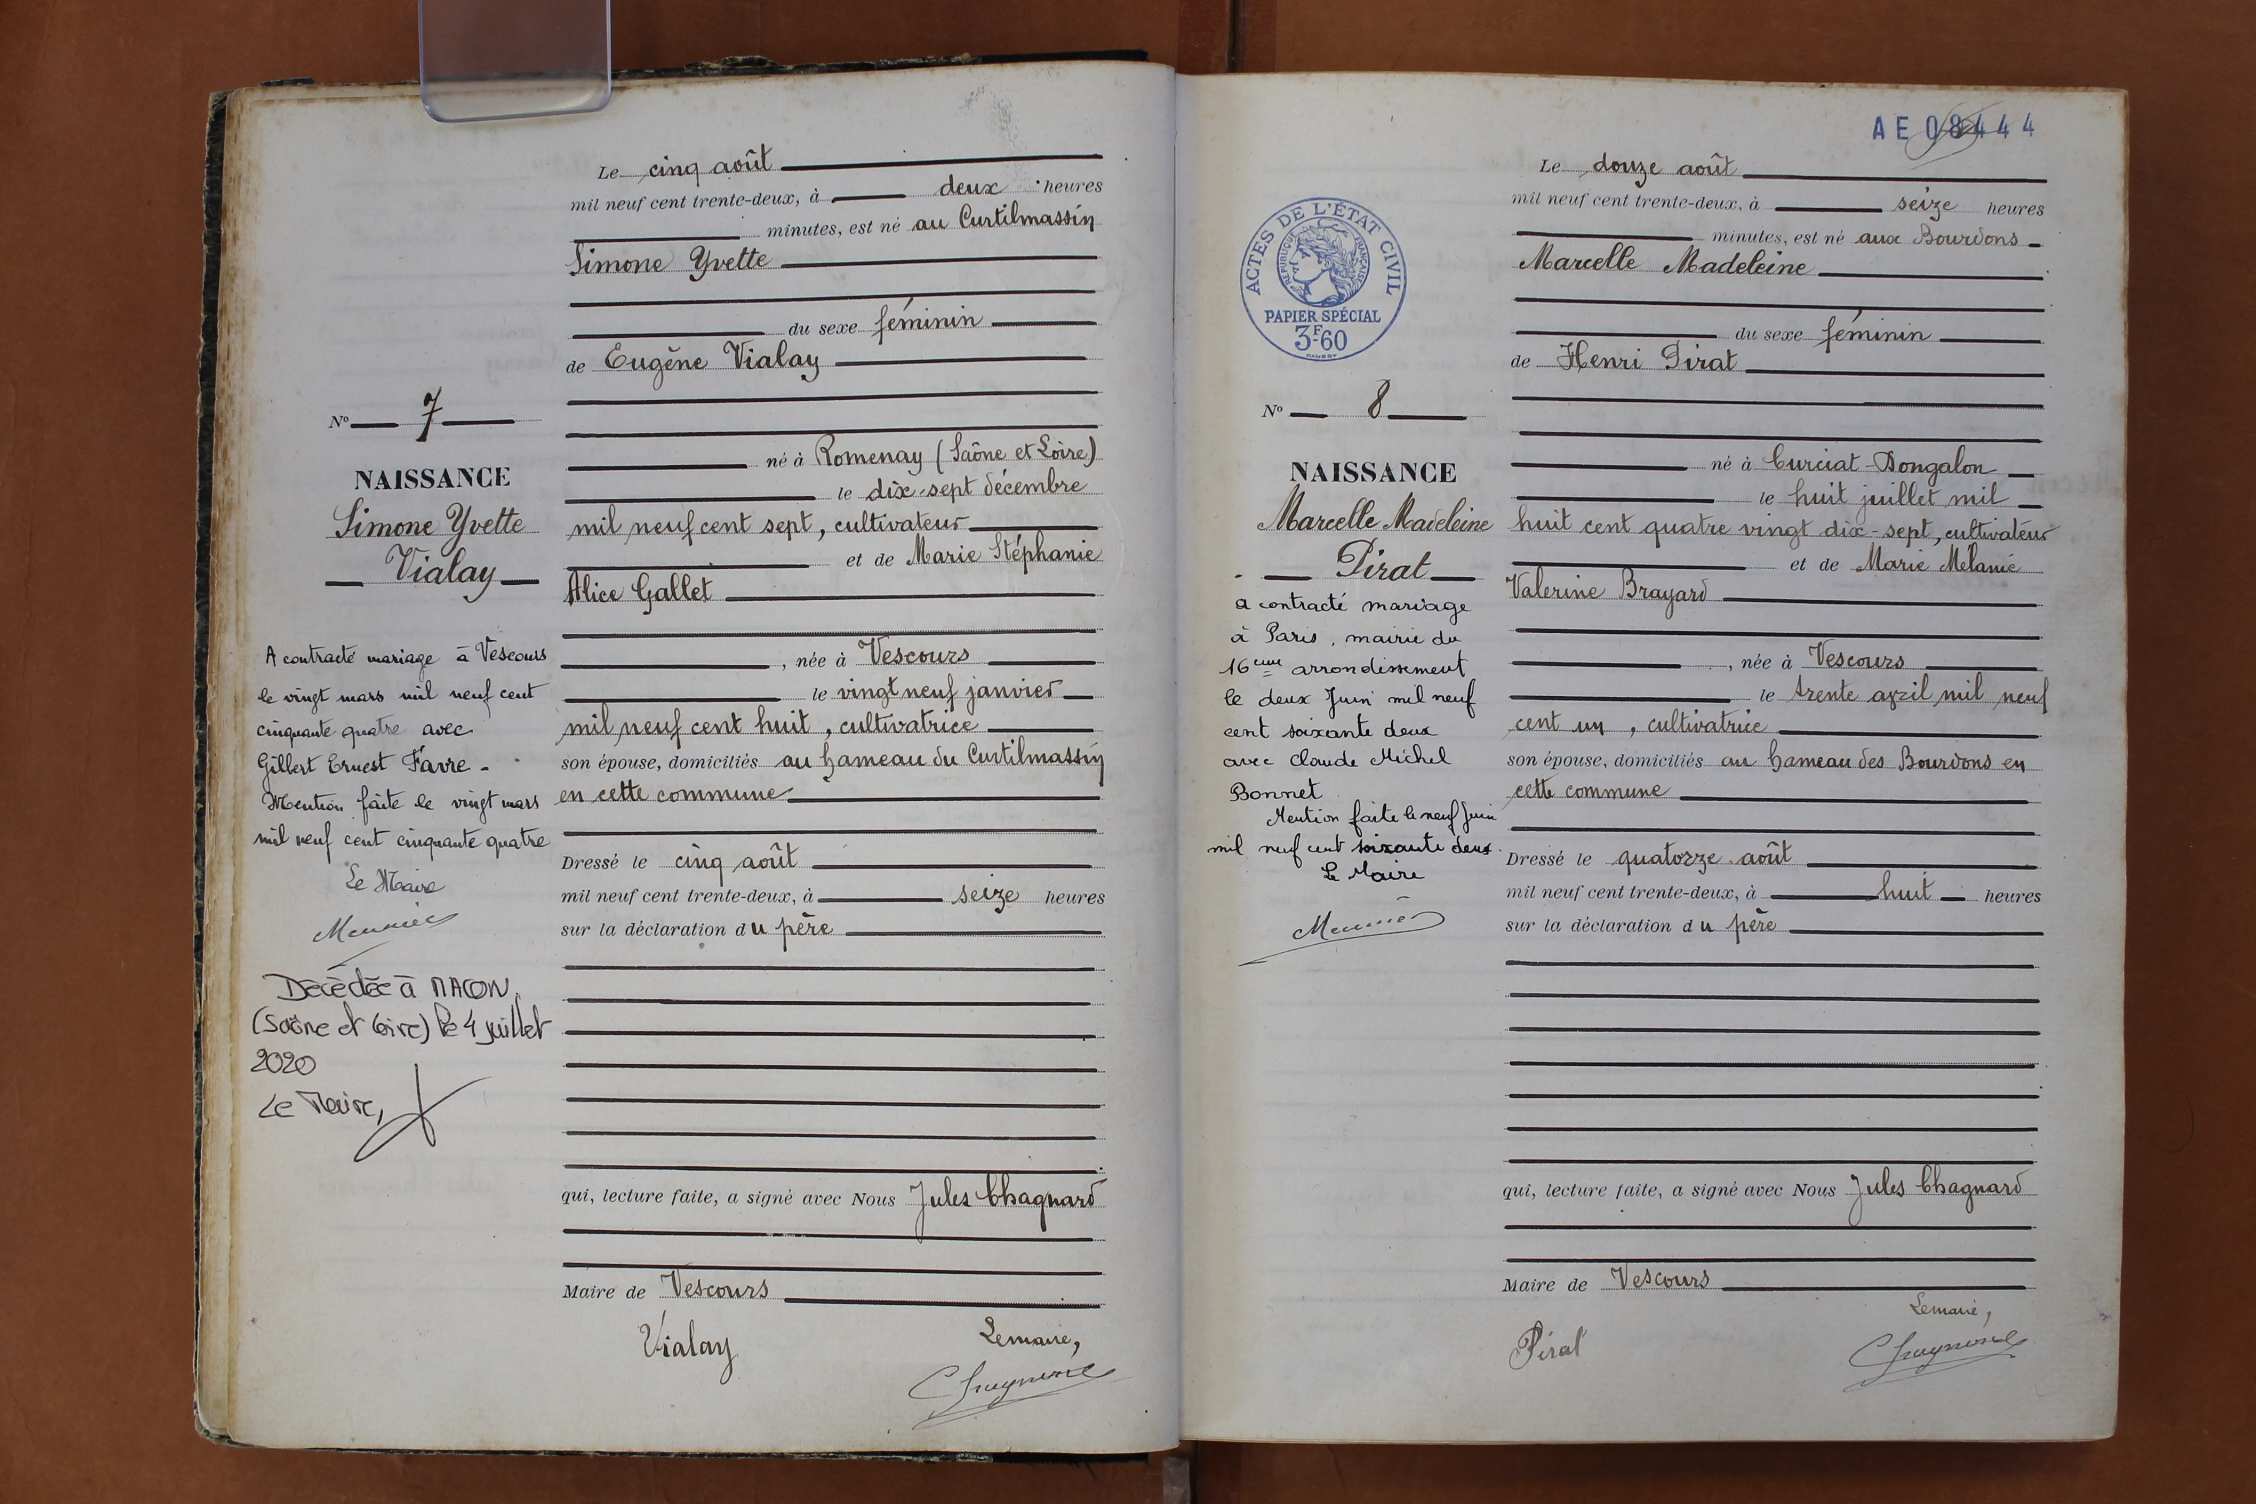 Le cinq août
mil neuf cent trente-deux, à deux heures
minutes, est né au Curtilmassin
Simone Yvette
du sexe féminin
de Eugène Vialay
né à Romenay (Saône et Loire)
le dix-sept décembre
mil neuf cent sept, cultivateur
et de Marie Stéphanie
Alice Gallet
, née à Vescours
le vingt neuf janvier
mil neuf cent huit, cultivatrice
son épouse, domiciliés au hameau du Curtilmassin
en cette commune
Dressé le cinq août
mil neuf cent trente-deux, à seize heures
sur la déclaration du père
qui, lecture faite, a signé avec Nous Jules Chagnard
Maire de Vescours
Vialay
Le maire,
Chagnard
No 7
NAISSANCE
Simone Yvette
Vialay
A contracté mariage à Vescours
le vingt mars mil neuf cent
cinquante quatre avec
Gilbert Ernest Favre.
Mention faite le vingt mars
mil neuf cent cinquante quatre
Le Maire
Meunier
Décédée à MACON
(Saône et Loire) le 4 juillet
2020
Le Maire,
AE 08444
Le douze août
mil neuf cent trente-deux, à seize heures
minutes, est né aux Bourdons
Marcelle Madeleine
du sexe féminin
de Henri Pirat
né à Curciat-Dongalon
le huit juillet mil
huit cent quatre vingt dix-sept, cultivateur
et de Marie Mélanie
Valerine Brayard
, née à Vescours
le trente avril mil neuf
cent un, cultivatrice
son épouse, domiciliés au hameau des Bourdons en
cette commune
Dressé le quatorze août
mil neuf cent trente-deux, à huit heures
sur la déclaration du père
qui, lecture faite, a signé avec Nous Jules Chagnard
Maire de Vescours
Le maire,
Pirat
Chagnard
ACTES DE L'ÉTAT CIVIL
RÉPUBLIQUE FRANÇAISE
PAPIER SPÉCIAL
3F60
No 8
NAISSANCE
Marcelle Madeleine
Pirat
a contracté mariage
à Paris, mairie du
16eme arrondissement
le deux Juin mil neuf
cent soixante deux
avec Claude Michel
Bonnet
Mention faite le neuf Juin
mil neuf cent soixante deux.
Le Maire
Meunier